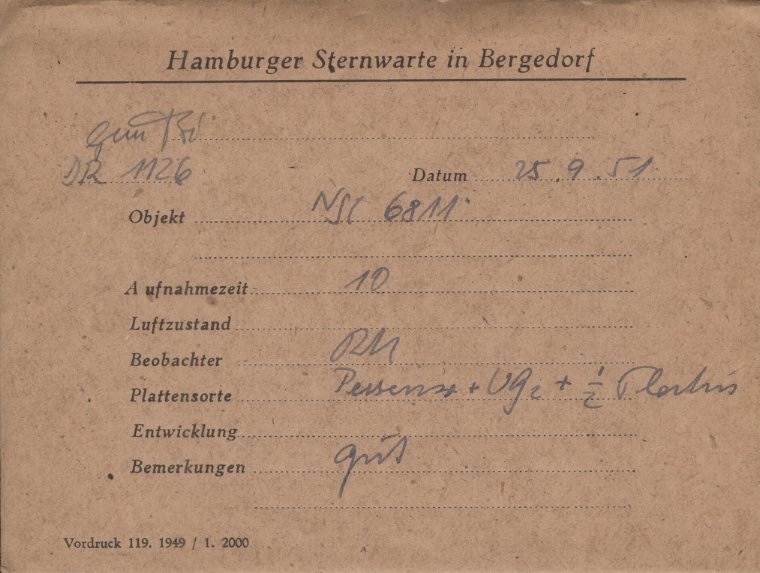 Hamburger Sternwarte in Bergedorf
DR 1126
Datum 25.9.51
Objekt NGC 6811
Aufnahmezeit 10
Luftzustand
Beobachter
Plattensorte + UG2 + 1/2
Entwicklung
Bemerkungen gut
Vordruck 119. 1949 / 1. 2000